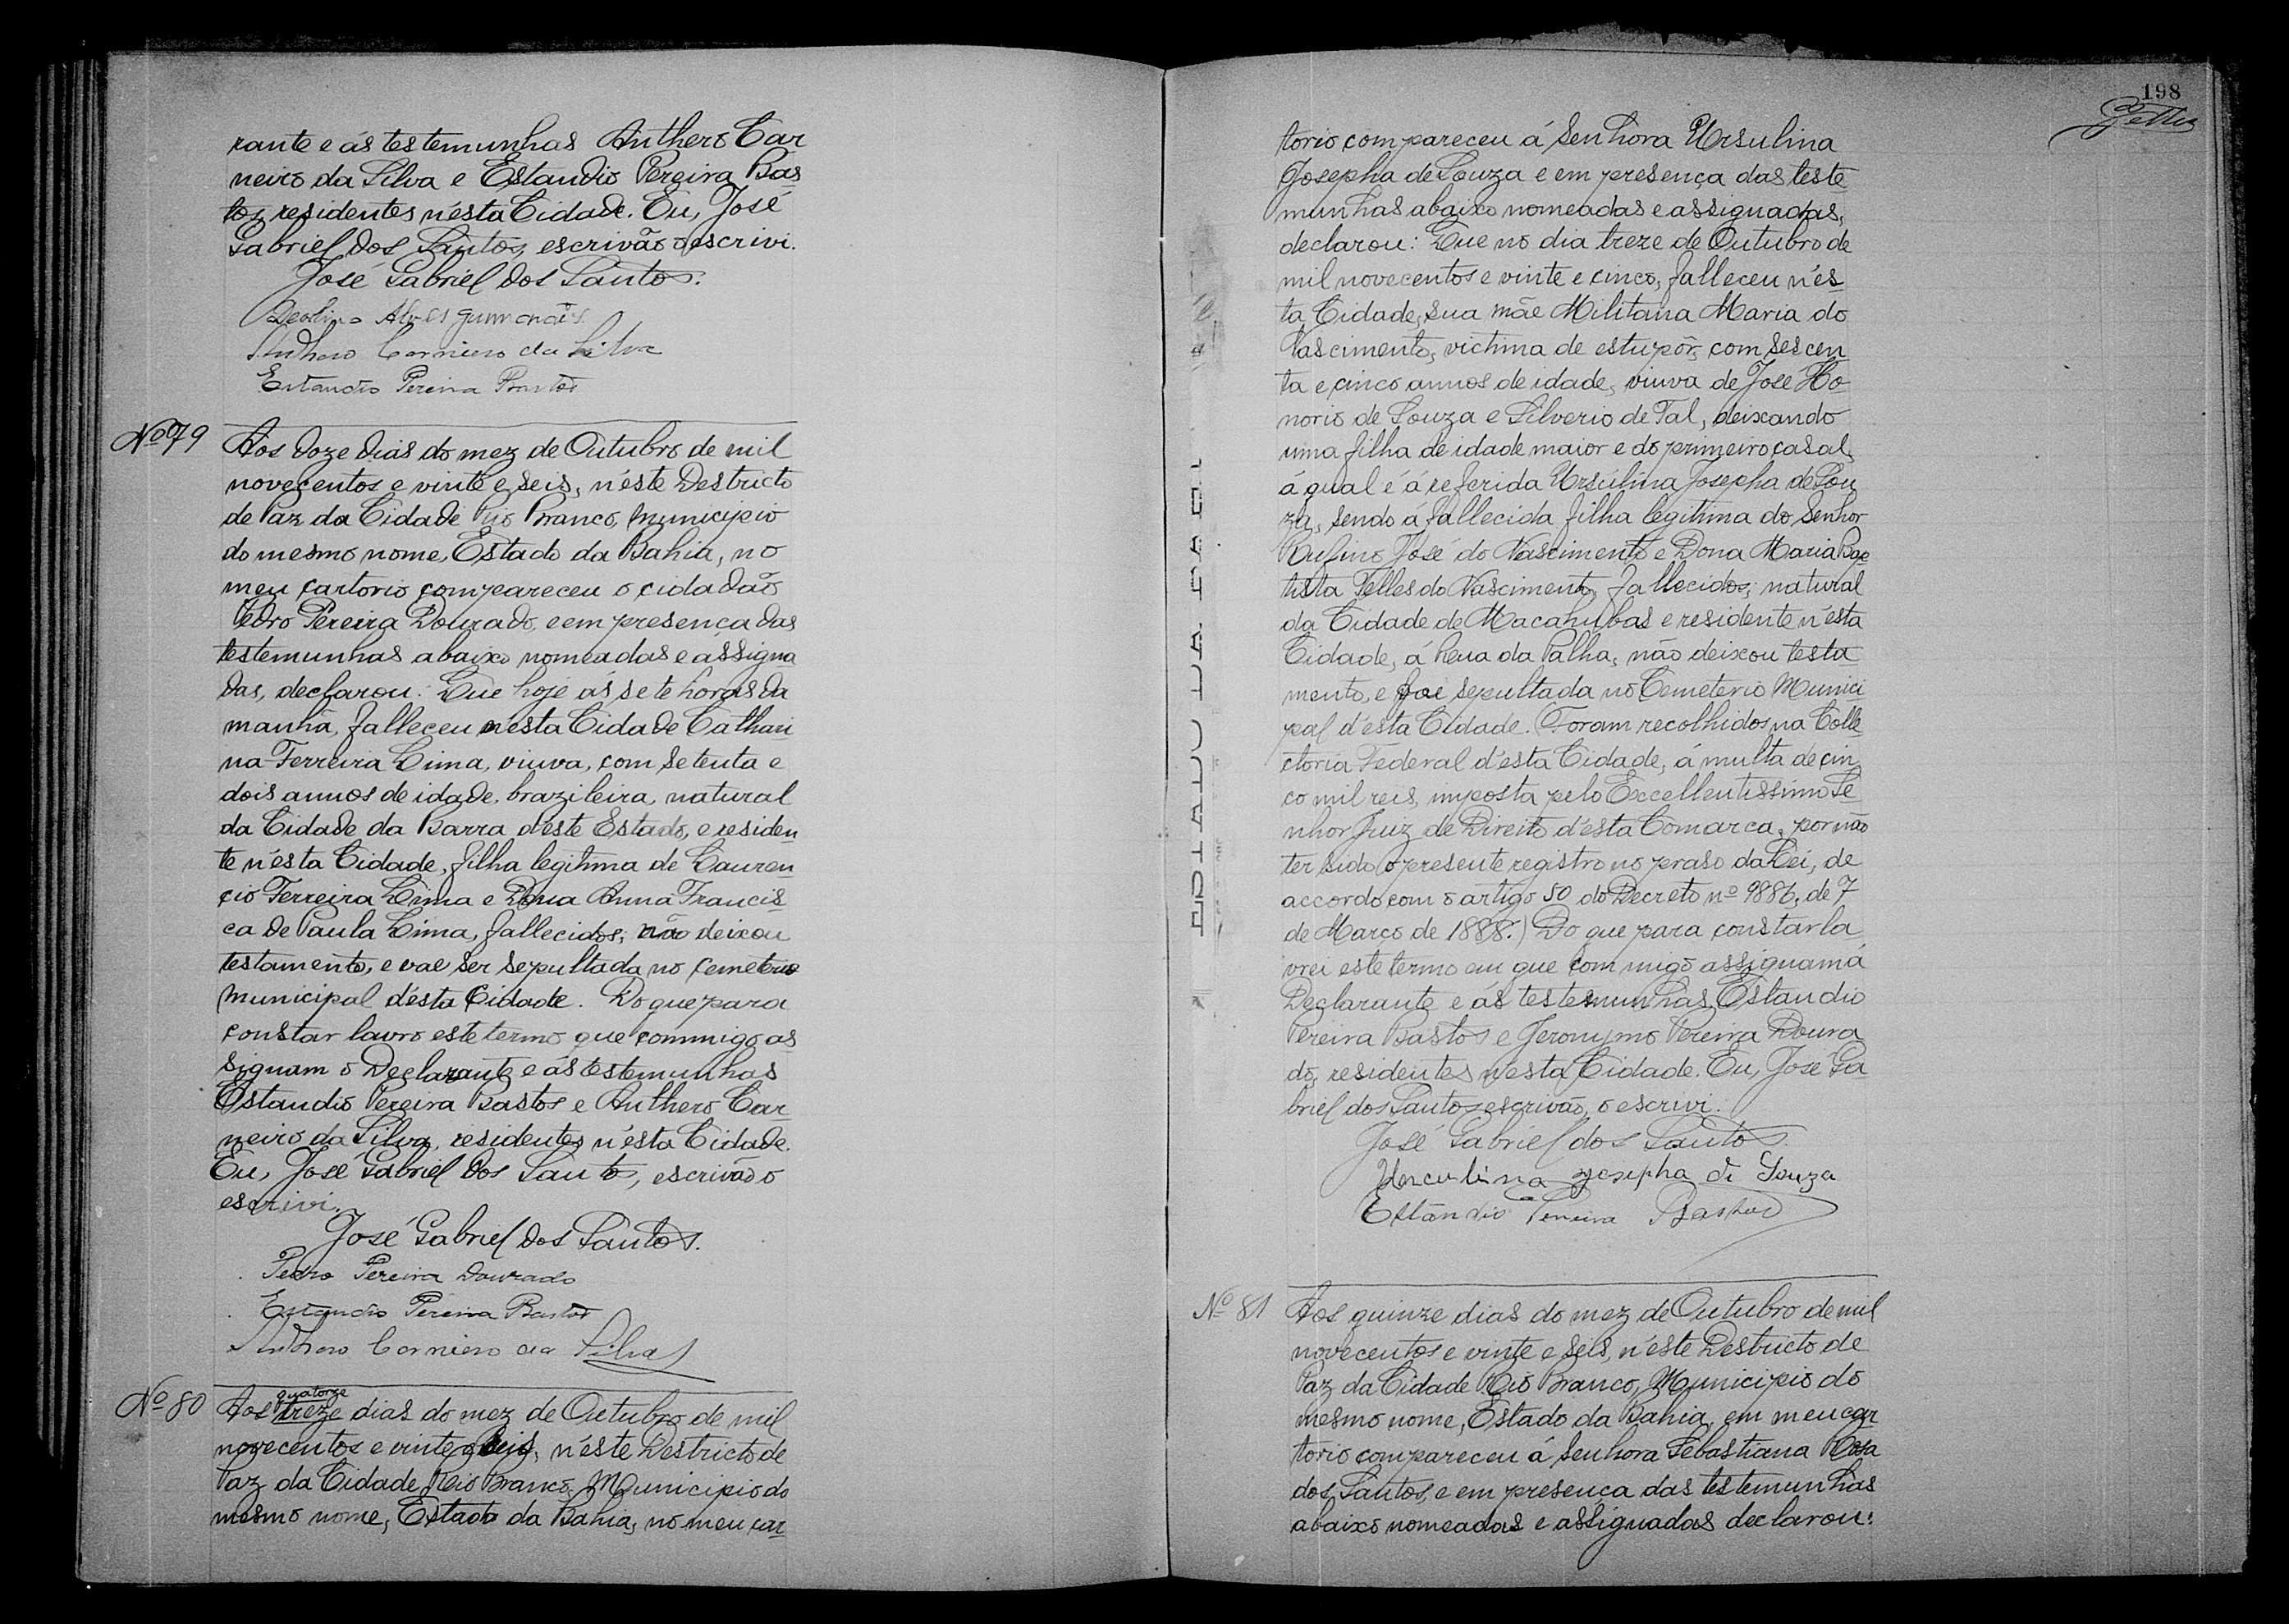 rante e ás testemunhas Anthero Car
neiro da Silva e Estandio Pereira Bas
tos, residentes n'esta Cidade. Eu, José
Gabriel dos Santos, escrivão o escrivi.
José Gabriel dos Santos.
Alves
Anthero Carneiro da Silva
Estandio Pereira Bastos
Nº 79
Aos doze dias do mez de Outubro de mil
novecentos e vinte e seis, n'éste Destricto
de Paz da Cidade Rio Branco, Municipio
do mesmo nome, Estado da Bahia, no
meu cartorio compareceu o cidadão
Pedro Pereira Dourado, e em presença das
testemunhas abaixo nomeadas e assigna
das, declarou: Que hoje ás sete horas da
manhã, falleceu n'esta Cidade Cathari
na Ferreira Lima, viuva, com setenta e
dois annos de idade, brazileira, natural
da Cidade da Barra d'este Estado, e residen
te n'esta Cidade, filha legitima de Lauren
ço Ferreira Lima e Dona Anna Francis
ca de Paula Lima, fallecidos; não deixou
testamento, e vae ser sepultada no Cemeterio
Municipal d'ésta Cidade. Do que para
constar lavro este termo que commigo as
signam o Declarante e ás testemunhas
Estandio Pereira Bastos e Anthero Car
neiro da Silva, residentes n'ésta Cidade.
Eu, José Gabriel dos Santos, escrivão o
escrivi.
José Gabriel dos Santos.
Pedro Pereira Dourado
Estandio Pereira Bastos
Anthero Carneiro da Silva
Nº 80
quatorze
Aos treze dias do mez de Outubro de mil
novecentos e vinte e seis, n'éste Destricto de
Paz da Cidade Rio Branco, Municipio do
mesmo nome, Estado da Bahia, no meu car
198
torio compareceu á Senhora Ursulina
Josepha de Souza e em presença das teste
munhas abaixo nomeadas e assignadas,
declarou: Que no dia treze de Outubro de
mil novecentos e vinte e cinco, falleceu n'és
ta Cidade, sua mãe Militana Maria do
Nascimento, victima de estupôr, com sescen
ta e cinco annos de idade, viuva de José Ho
norio de Souza e Silverio de Tal, deixando
uma filha de idade maior e do primeiro casal,
á qual é á referida Ursulina Josepha de Sou
za, sendo á fallecida filha legitima do Senhor
Rufino José do Nascimento e Dona Maria Bap
tista Telles do Nascimento, fallecidos; natural
da Cidade de Macahubas e residente n'ésta
Cidade, á Rua da Palha, não deixou testa
mento, e foi sepultada no Cemeterio Munici
pal d'ésta Cidade. (Foram recolhidos na Colle
ctoria Federal d'ésta Cidade, á multa de cin
co mil reis, imposta pelo Excellentissimo Se
nhor Juiz de Direito d'ésta Comarca, por não
ter sido o presente registro no praso da Lei, de
accordo com o artigo 50 do Decreto nº 9886, de 7
de Março de 1888.) Do que para constar la
vrei este termo em que commigo assignam á
Declarante e ás testemunhas Estandio
Pereira Bastos e Jeronymo Pereira Doura
do, residentes n'esta Cidade. Eu, José Ga
briel dos Santos escrivão, o escrivi.
José Gabriel dos Santos.
Herculina Josepha di Souza
Estandio Pereira Bastos
Nº 81
Aos quinze dias do mez de Outubro de mil
novecentos e vinte e seis, n'éste Destricto de
Paz da Cidade Rio Branco, Municipio do
mesmo nome, Estado da Bahia, em meu car
torio compareceu á Senhora Sebastiana Rosa
dos Santos, e em presença das testemunhas
abaixo nomeadas e assignadas declarou: